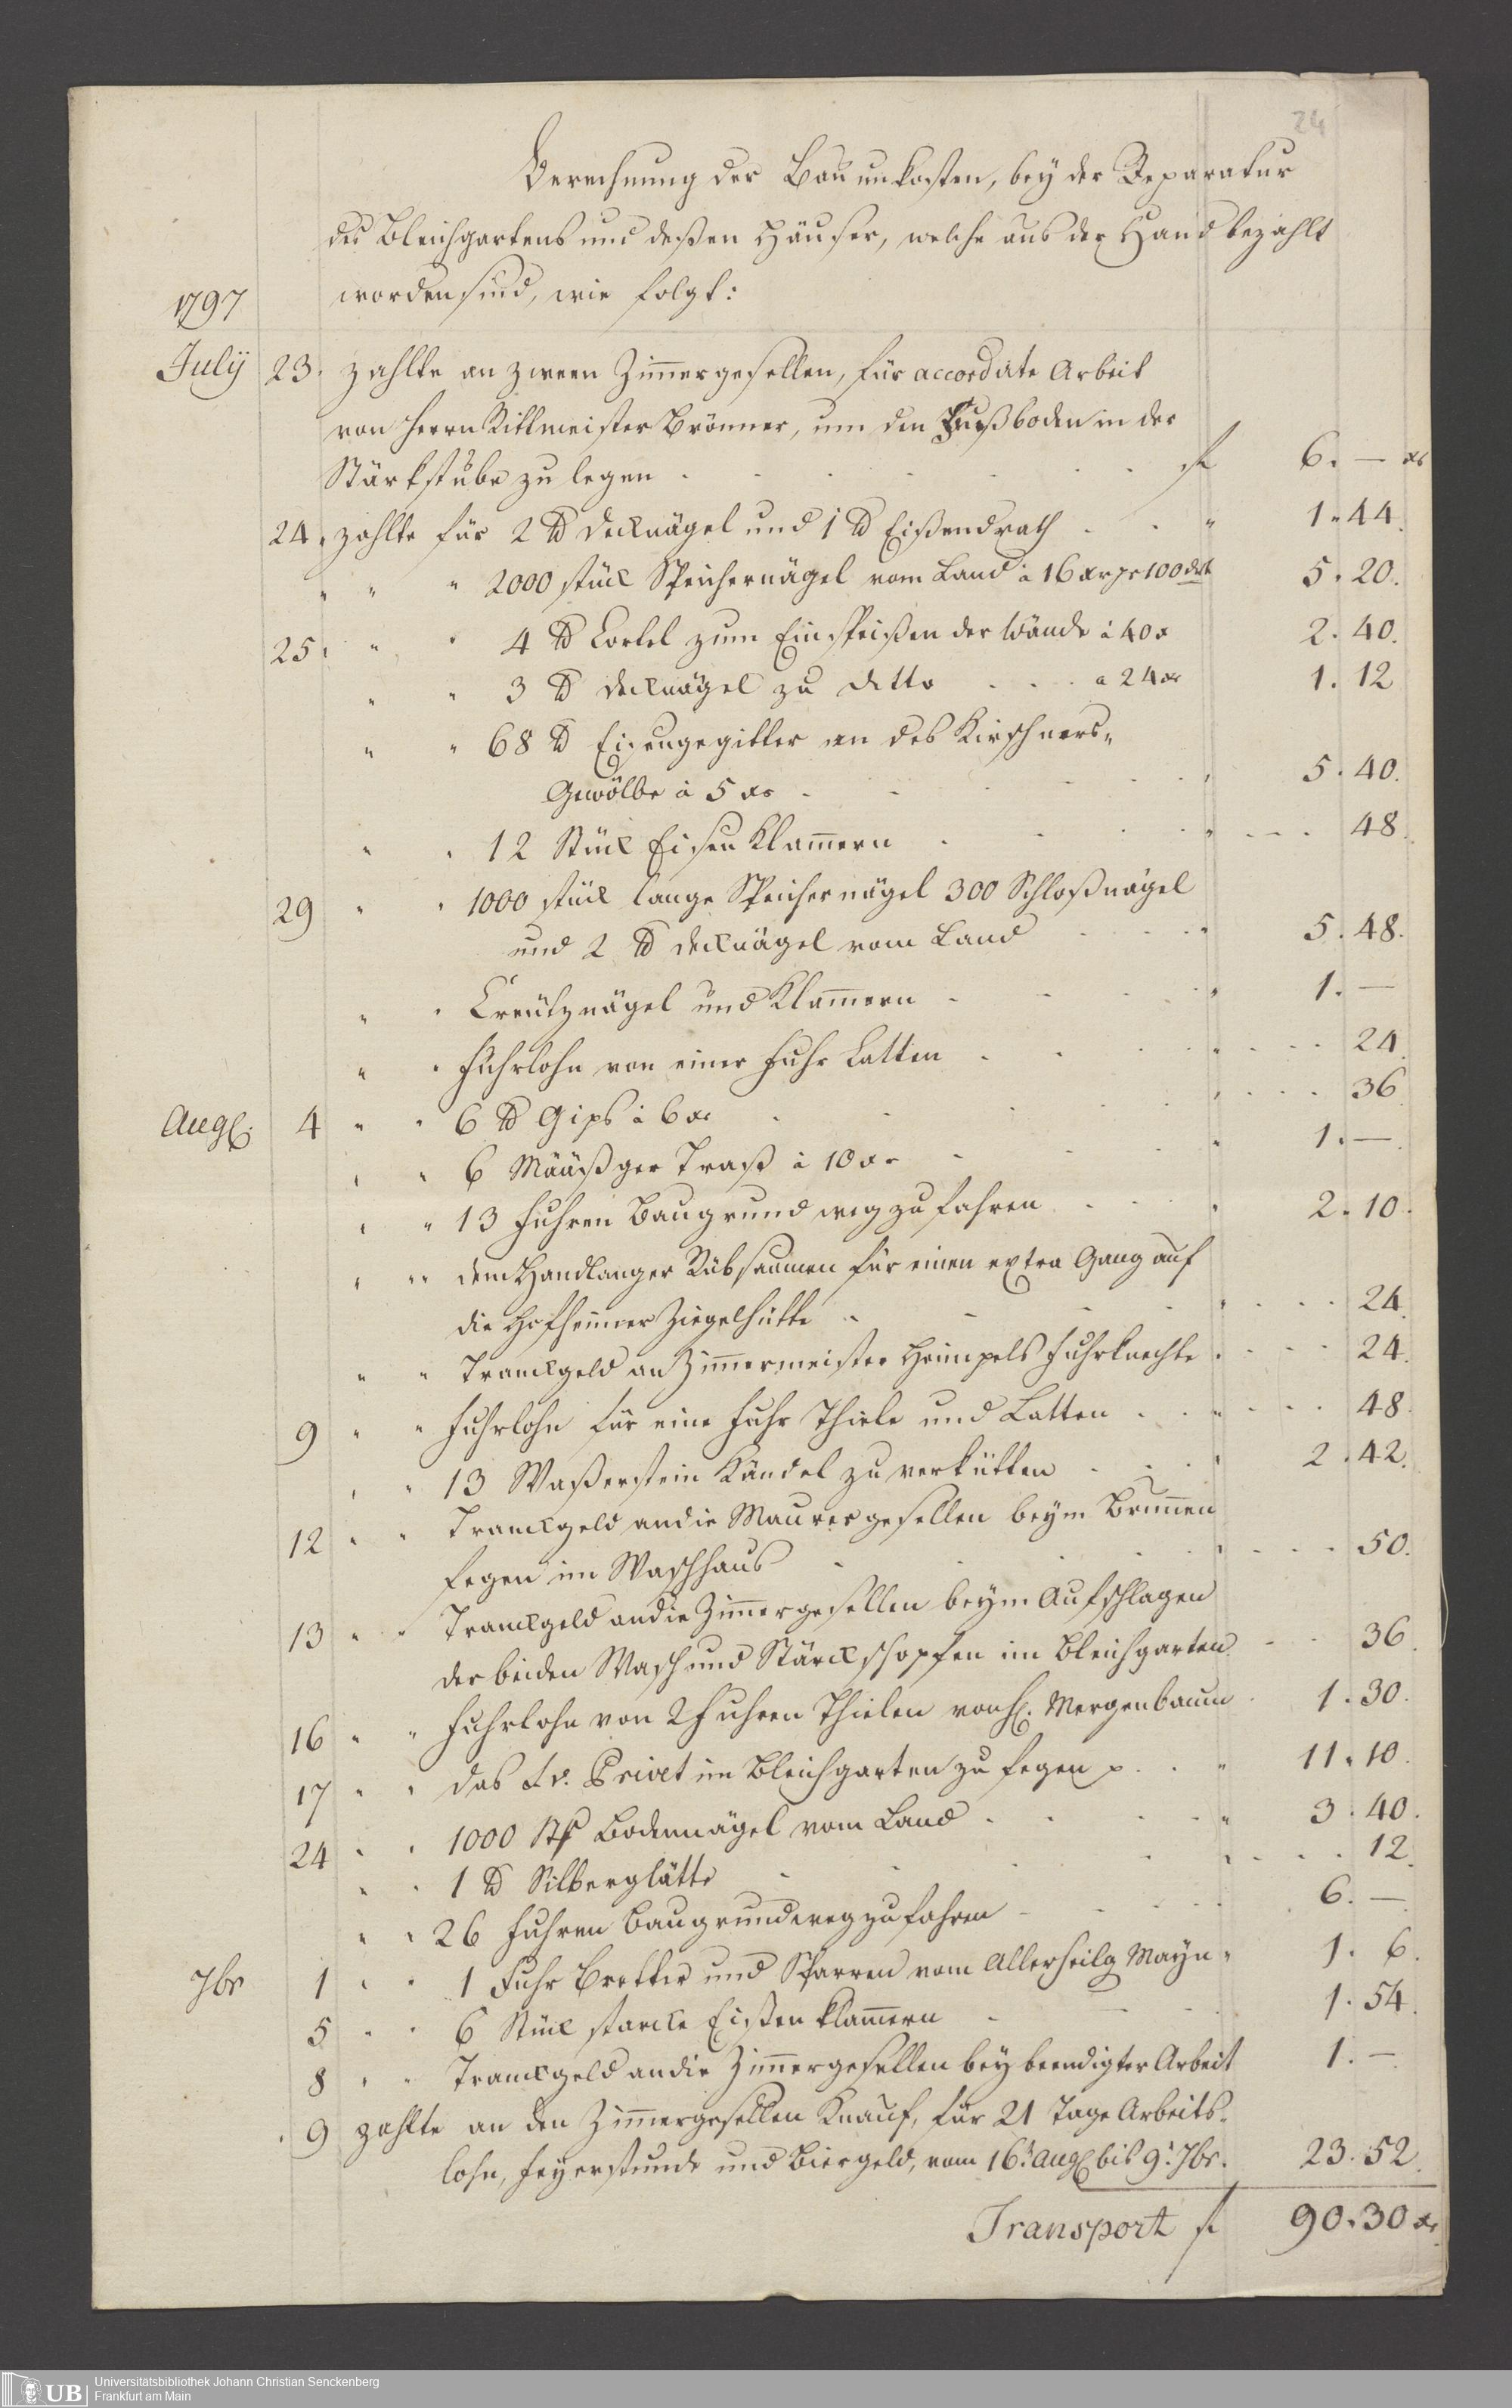 24
Berechnung der Bauunkosten, bey der Reparatur
des Bleichgartens und deßen Häuser, welche aus der Hand bezahlt
worden sind, wie folgt:
1797
July 23. zahlte an zween Zim̅ergesellen, für accordirte Arbeit
von Herrn Rittmeister Brönner, um den Fußboden in der
Stärkstube zu legen . . . . . . f 6. — xr
24. zahlte für 2 ℔ Decknägel und 1 ℔ Eißendrath . . " 1. 44.
" " " 2000 stück Speichernägel vom Land à 16 xr pr 100 5. 20.
25. " " 4 ℔ Cortel zum Einspeißen der Wände à 40 x 2. 40.
" " 3 ℔ Decknägel zu ditto . . . a 24 xr 1. 12
" " 68 ℔ Eisengegitter an des Kirschners-
Gewölbe à 5 xr . . . . . . 5. 40.
" " 12 Stück Eisen Klam̅ern . . . . " - - - 48.
29 " " 1000 stück lange Speichernägel 300 Schloßnägel
und 2 ℔ Decknägel vom Land . . . " 5. 48.
" " Creutznägel und Klam̅ern . . . . " 1. —
" " Fuhrlohn von einer Fuhr Latten . . . . " - - - 24.
Aug. 4 " " 6 ℔ Gips à 6 xr . . . . . " - - - 36
" " 6 Määßger Traß à 10 xr . . . . " 1. —.
" " 13 Fuhren Baugrund weg zu fahren . . . " 2. 10.
" " " dem Handlanger Rübsaamen für einen extra Gang auf
die Hofheimer Ziegelhütte . . . . " - - - 24.
" " Tranckgeld an Zim̅ermeister Heimpels Fuhrknechte . - - - 24.
9 " " Fuhrlohn für eine Fuhr Thiele und Latten . . " - - - 48.
" " 13 Waßerstein Kändel zu verkütten . . . " 2. 42.
12 " " Tranckgeld an die Maurergesellen beym Brun̅en
fegen im Waschhaus . . . . . " - - - 50.
13 " " Tranckgeld an die Zim̅ergesellen beym Aufschlagen
der beiden Wasch und Stärckschopfen im Bleichgarten - - 36.
16 " " Fuhrlohn von 2 Fuhren Thielen von H. Mergenbaum . 1. 30.
17 " " das s.v. Privet im Bleichgarten zu fegen p. . . " 11. 10.
24 " " 1000 Stk Bodennägel vom Land . . . . " 3. 40.
" " 1 ℔ Silberglätte . . . . . " - - - 12.
" " 26 Fuhren Baugrund weg zu fahren . . . . 6. —
7br 1 " " 1 Fuhr Bretter und Sparren vom Allerheilg Mayn " 1. 6.
5 " " 6 Stück starcke Eißen klam̅ern . . . . 1. 54.
8 " " Tranckgeld an die Zim̅ergesellen bey beendigter Arbeit 1. —
9 zahlte an den Zim̅ergesellen Knauf, für 21 Tage Arbeits-
lohn, Feyerstunde und Biergeld, vom 16t. Aug bis 9t. 7br. 23. 52.
Transport f 90. 30 xr
UB
Universitätsbibliothek Johann Christian Senckenberg
Frankfurt am Main